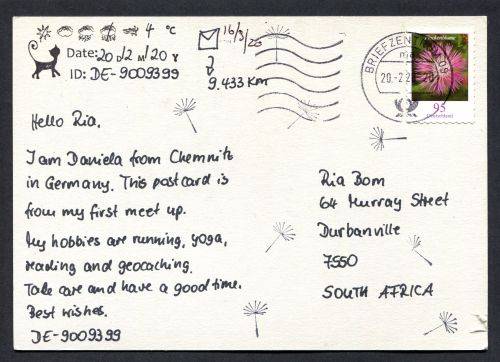 4 °C
Date: 20 d/2 M/20 Y
ID: DE-9009399
16/3/20
9.433 KM
Hello Ria.
I am Daniela from Chemnitz
in Germany. This postcard is
from my first meet up.
My hobbies are running, yoga,
reading and geocaching.
Take care and have a good time.
Best wishes.
DE-9009399
BRIEFZENTRUM 09
20.-2.20
95
Deutschland
Ria Bom
64 Murray Street
Durbanville
7550
SOUTH AFRICA